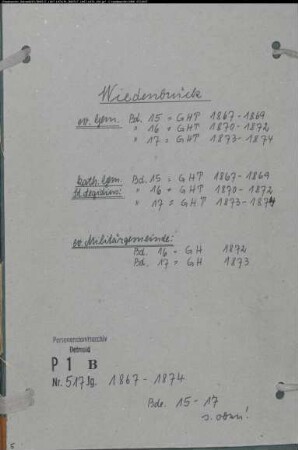 Wiedenbrück
ev. Gem. Bd. 15 = GHT 1867-1869
" 16 = GHT 1870-1872
" 17 = GHT 1873-1874
kath. Gem. Bd. 15 = GHT 1867-1869
St. Aegidius: " 16 = GHT 1870-1872
" 17 = GHT 1873-1874
ev. Militärgemeinde:
Bd. 16 = GH 1872
Bd. 17 = GH 1873
Personenstandsarchiv
Detmold
P 1 B
Nr. 517 Jg. 1867 - 1874
Bde. 15 - 17
s. oben!